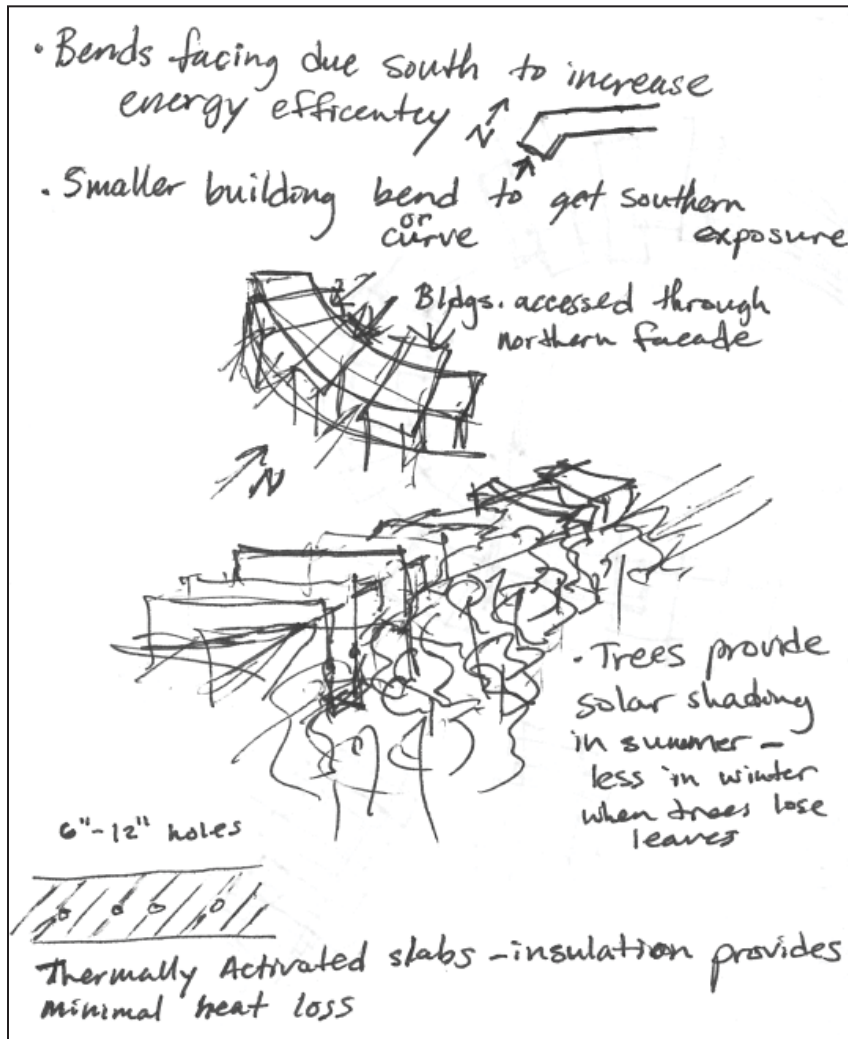 · Bends facing due south to increase
energy efficentcy
N
· Smaller building bend to get southern
or
curve exposure
Bldgs. accessed through
northern facade
N
· Trees provide
solar shading
in summer -
less in winter
when trees lose
leaves
6"-12" holes
Thermally Activated slabs - insulation provides
minimal heat loss